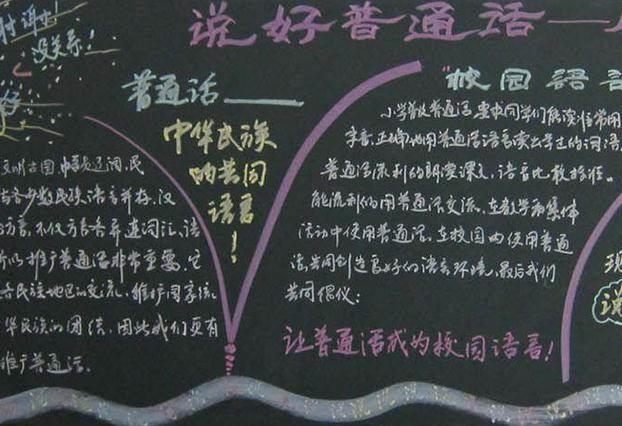 谢谢!
没关系!
说好普通话——
普通话
中华民族
的共同
语言
!
文明古国,中華
各少数民族语言并存,汉
方言,不仅方言各异连词汇、语
所以推广普通话非常重要。它
各民族地区的交流,维护国家统
华民族的团结,因此我们更有
推广普通话。
"校园语言
小学普及普通话要求同学们能读准常用
字音,正确地用普通话语言读出学过的词语,
普通话流利的朗读课文,语言比较标准。
能流利的用普通话交流,在教学和集体
活动中使用普通话,在校园内使用普通
话,共同创造良好的语言环境,最后我们
共同倡议:
让普通话成为校园语言!
现
说